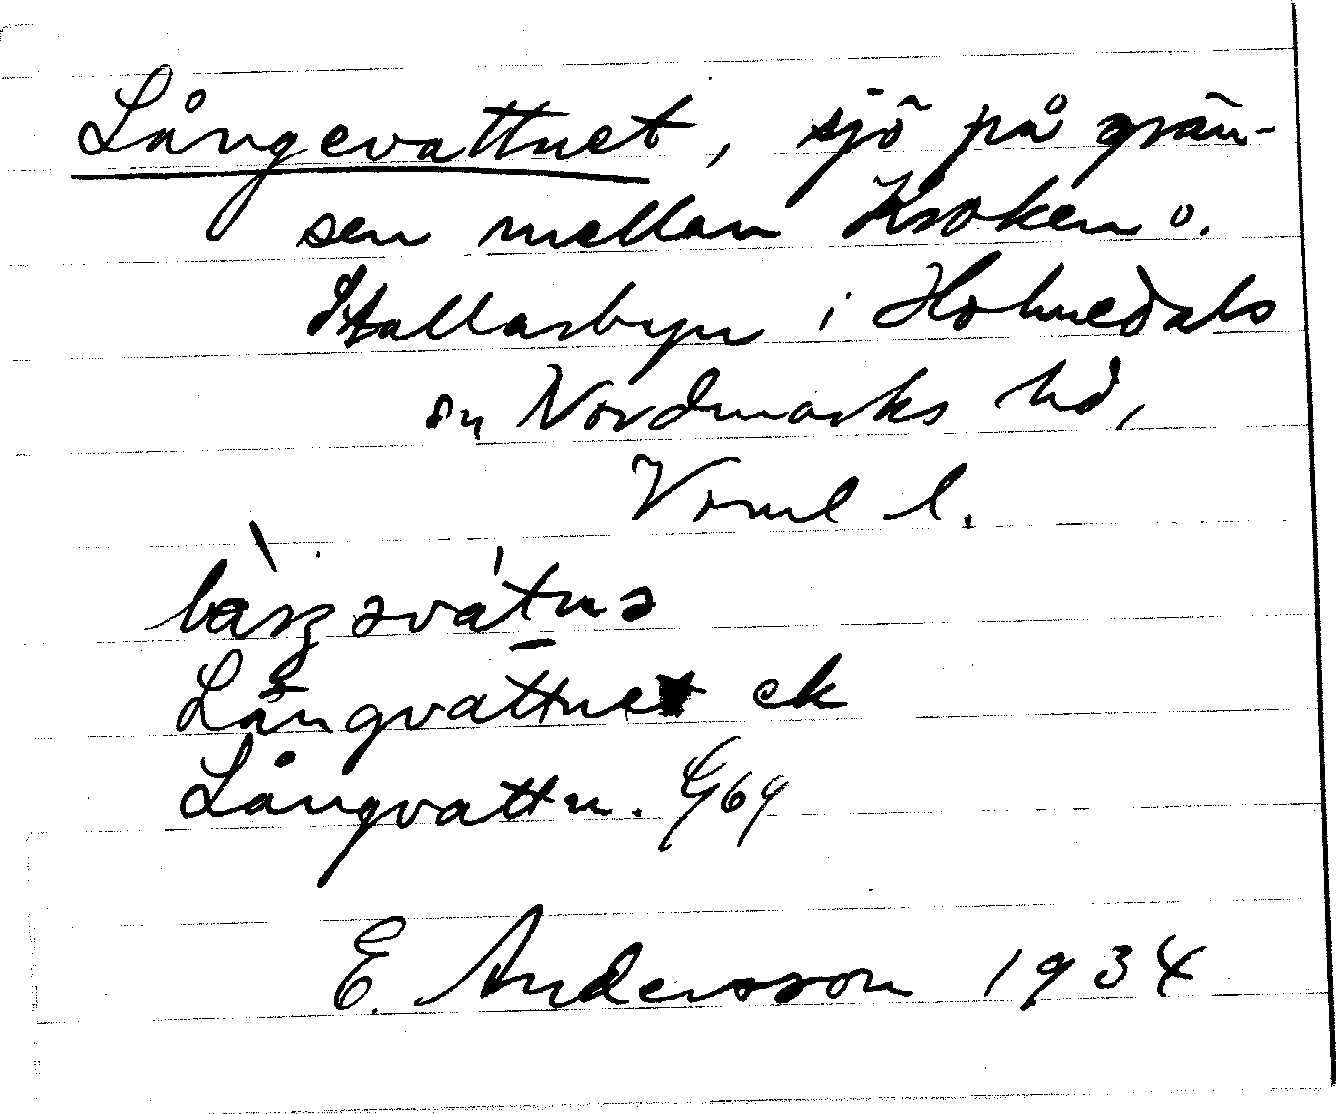 Långevattnet, sjö på grän-
sen mellan Kroken o.
Stallarbyn i Holmedals
sn Nordmarks hd,
Vrml l.
Långvattnet ek
Långvattn. G69
E. Andersson 1934